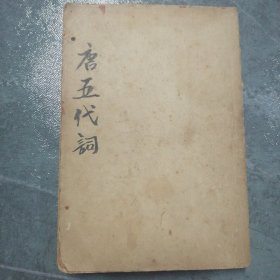 唐五代詞